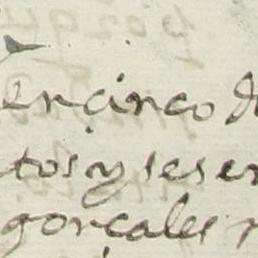 ençinco d
tos y sesen
gonçales